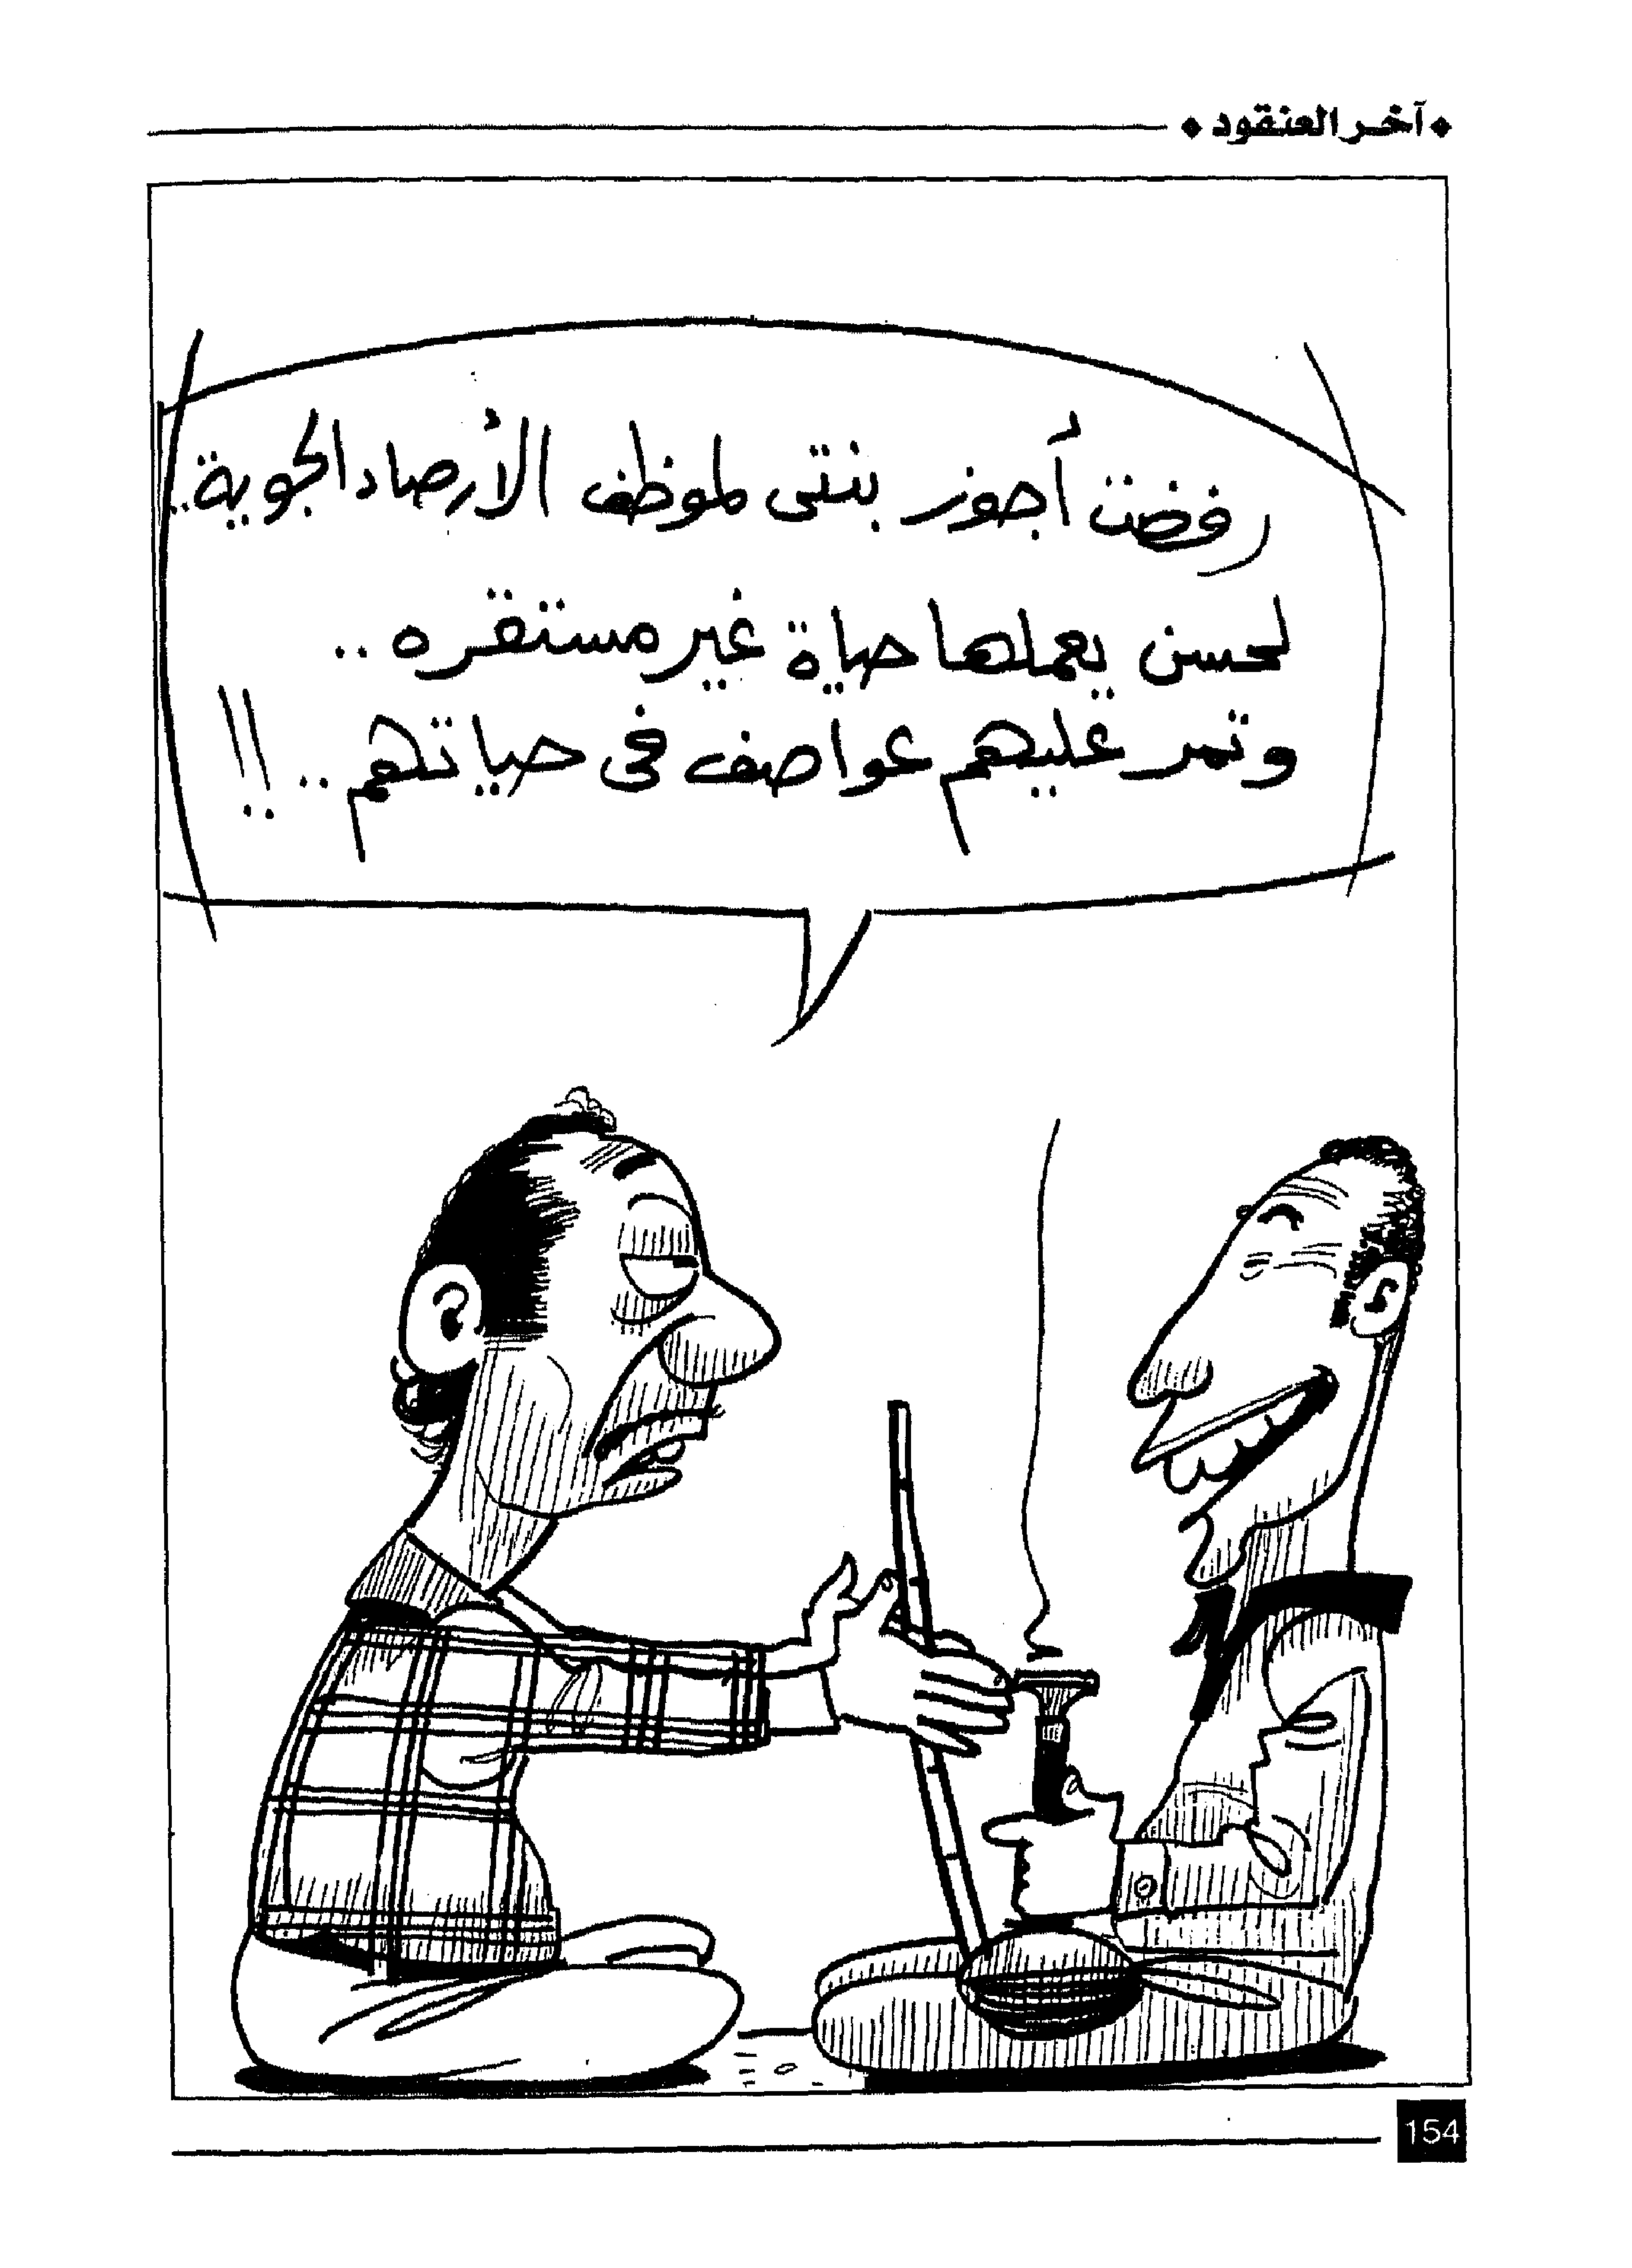 آخر العنقود
رفضت أجوز بنتى لموظف الأرصاد الجوية..
لحسن يعملها حياة غير مستقره..
وتمر عليهم عواصف فى حياتهم..!!
154